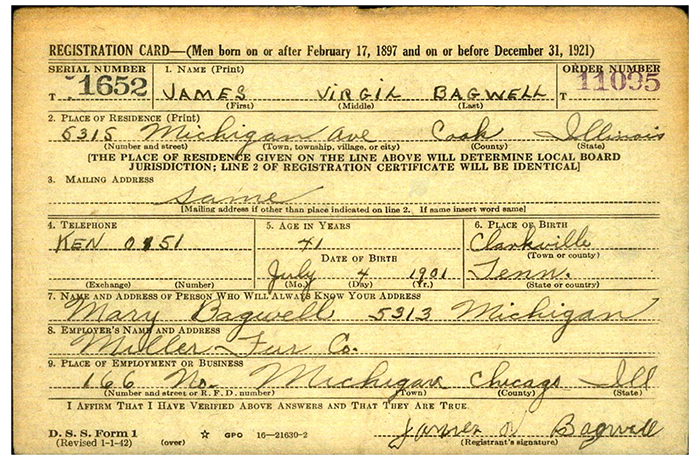 REGISTRATION CARD—(Men born on or after February 17, 1897 and on or before December 31, 1921)
SERIAL NUMBER 1. NAME (Print) ORDER NUMBER
T 1652 JAMES VIRGIL BAGWELL T 11095
(First) (Middle) (Last)
2. PLACE OF RESIDENCE (Print)
5315 Michigan Ave Cook Illinois
(Number and street) (Town, township, village, or city) (County) (State)
[THE PLACE OF RESIDENCE GIVEN ON THE LINE ABOVE WILL DETERMINE LOCAL BOARD
JURISDICTION; LINE 2 OF REGISTRATION CERTIFICATE WILL BE IDENTICAL]
3. MAILING ADDRESS
same
[Mailing address if other than place indicated on line 2. If same insert word same]
4. TELEPHONE 5. AGE IN YEARS 6. PLACE OF BIRTH
KEN 0851 41 Clarkville
(Town or county)
DATE OF BIRTH
July 4 1901 Tenn.
(Exchange) (Number) (Mo.) (Day) (Yr.) (State or country)
7. NAME AND ADDRESS OF PERSON WHO WILL ALWAYS KNOW YOUR ADDRESS
Mary Bagwell 5313 Michigan
8. EMPLOYER'S NAME AND ADDRESS
Miller Fur Co.
9. PLACE OF EMPLOYMENT OR BUSINESS
166 No. Michigan Chicago Ill
(Number and street or R. F. D. number) (Town) (County) (State)
I AFFIRM THAT I HAVE VERIFIED ABOVE ANSWERS AND THAT THEY ARE TRUE.
D. S. S. Form 1
(Revised 1-1-42) (over) ☆ GPO 16—21630-2 James V Bagwell
(Registrant's signature)